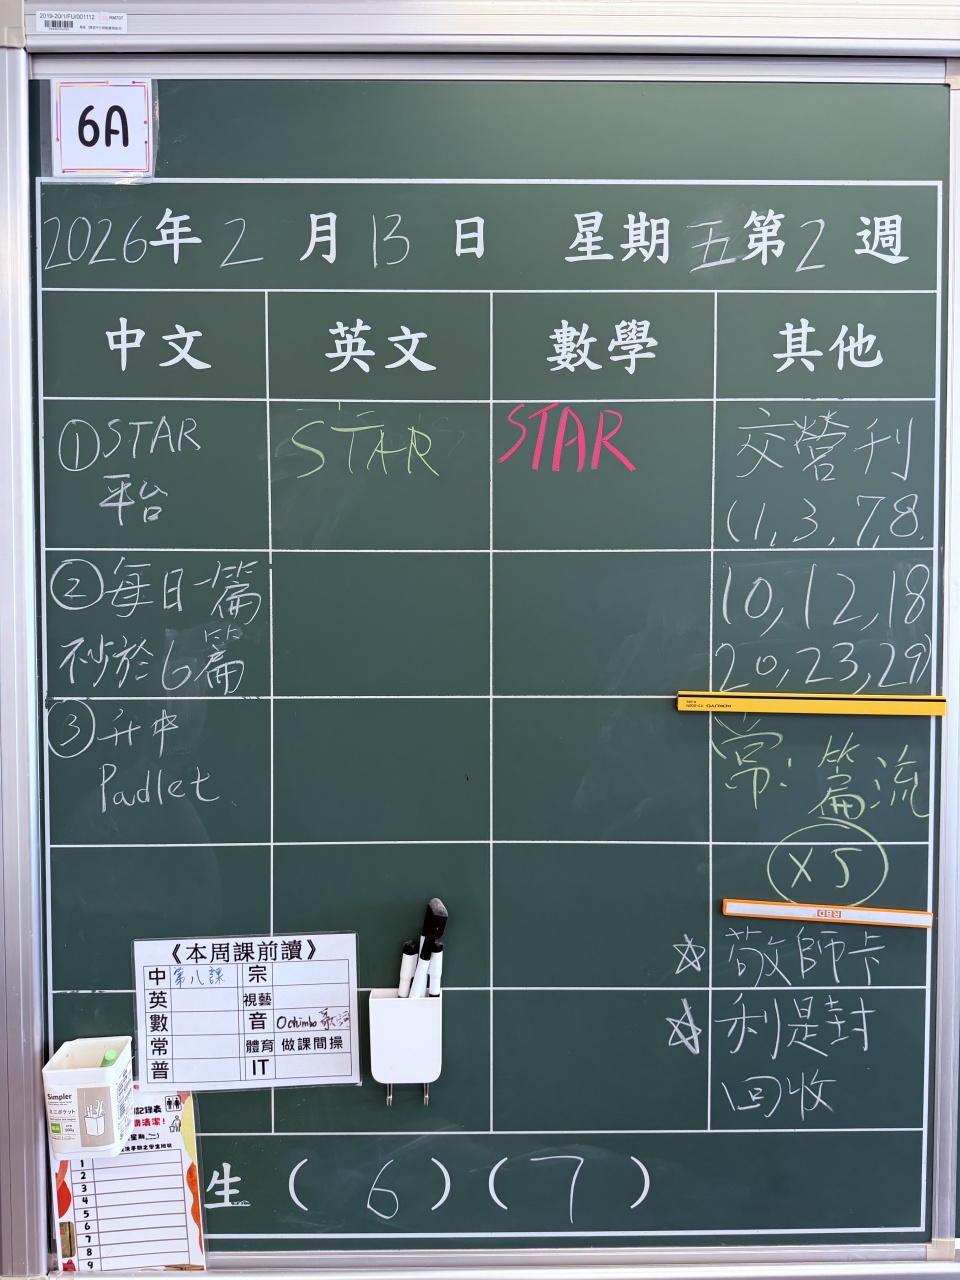 2019-20/1/FU/001112
RM707
6A
2026年 2 月 13 日 星期 五 第 2 週
中文 英文 數學 其他
①STAR
平台
②每日一篇
不少於6篇
③升中
Padlet
STAR
STAR
交營刊
(1, 3, 7, 8,
10, 12, 18
20, 23, 29)
KOKUYO
常: 篇流
X5
RBD
☆敬師卡
☆利是封
回收
《本周課前讀》
中 第八課 宗
英 視藝
數 音 Ochimbo 歌詞
常 體育 做課間操
普 IT
Simpler
ミニポケット
記錄表
清潔!
1
2
3
4
5
6
7
8
9
生 ( 6 ) ( 7 )